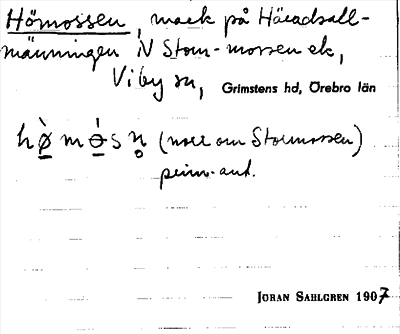 Hömossen, mark på Häradsall-
männingen N Stor-mossen ek,
Viby sn, Grimstens hd, Örebro län
hø̀mǿsn̥ (norr om Stormossen)
prim-aut.
JÖRAN SAHLGREN 1907